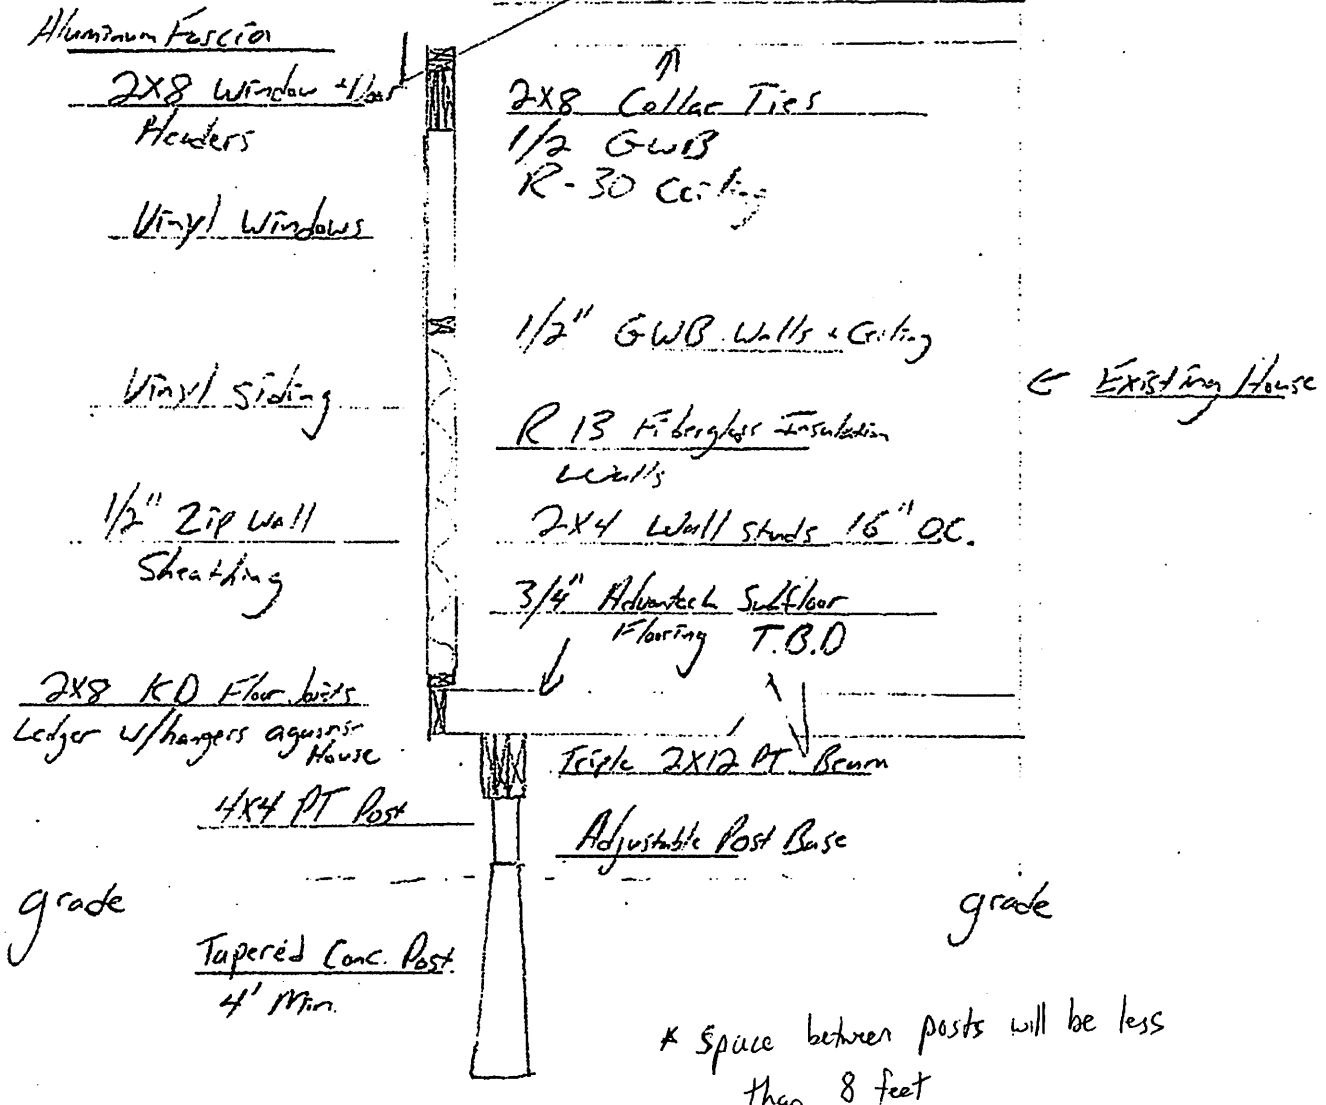 Aluminum Fascia
2X8 Window + Door
Headers
Vinyl Windows
Vinyl Siding
1/2" Zip Wall
Sheathing
2X8 KD Floor Joists
Ledger w/hangers against
House
4X4 PT Post
grade
Tapered Conc. Post.
4' Min.
2X8 Collar Ties
1/2 GWB
R-30 Ceiling
1/2" GWB Walls + Ceiling
R 13 Fiberglass Insulation
Walls
2X4 Wall Studs 16" O.C.
3/4" Advantech Subfloor
Flooring T.B.D
Triple 2X12 PT Beam
Adjustable Post Base
Existing House
grade
* Space between posts will be less
than 8 feet